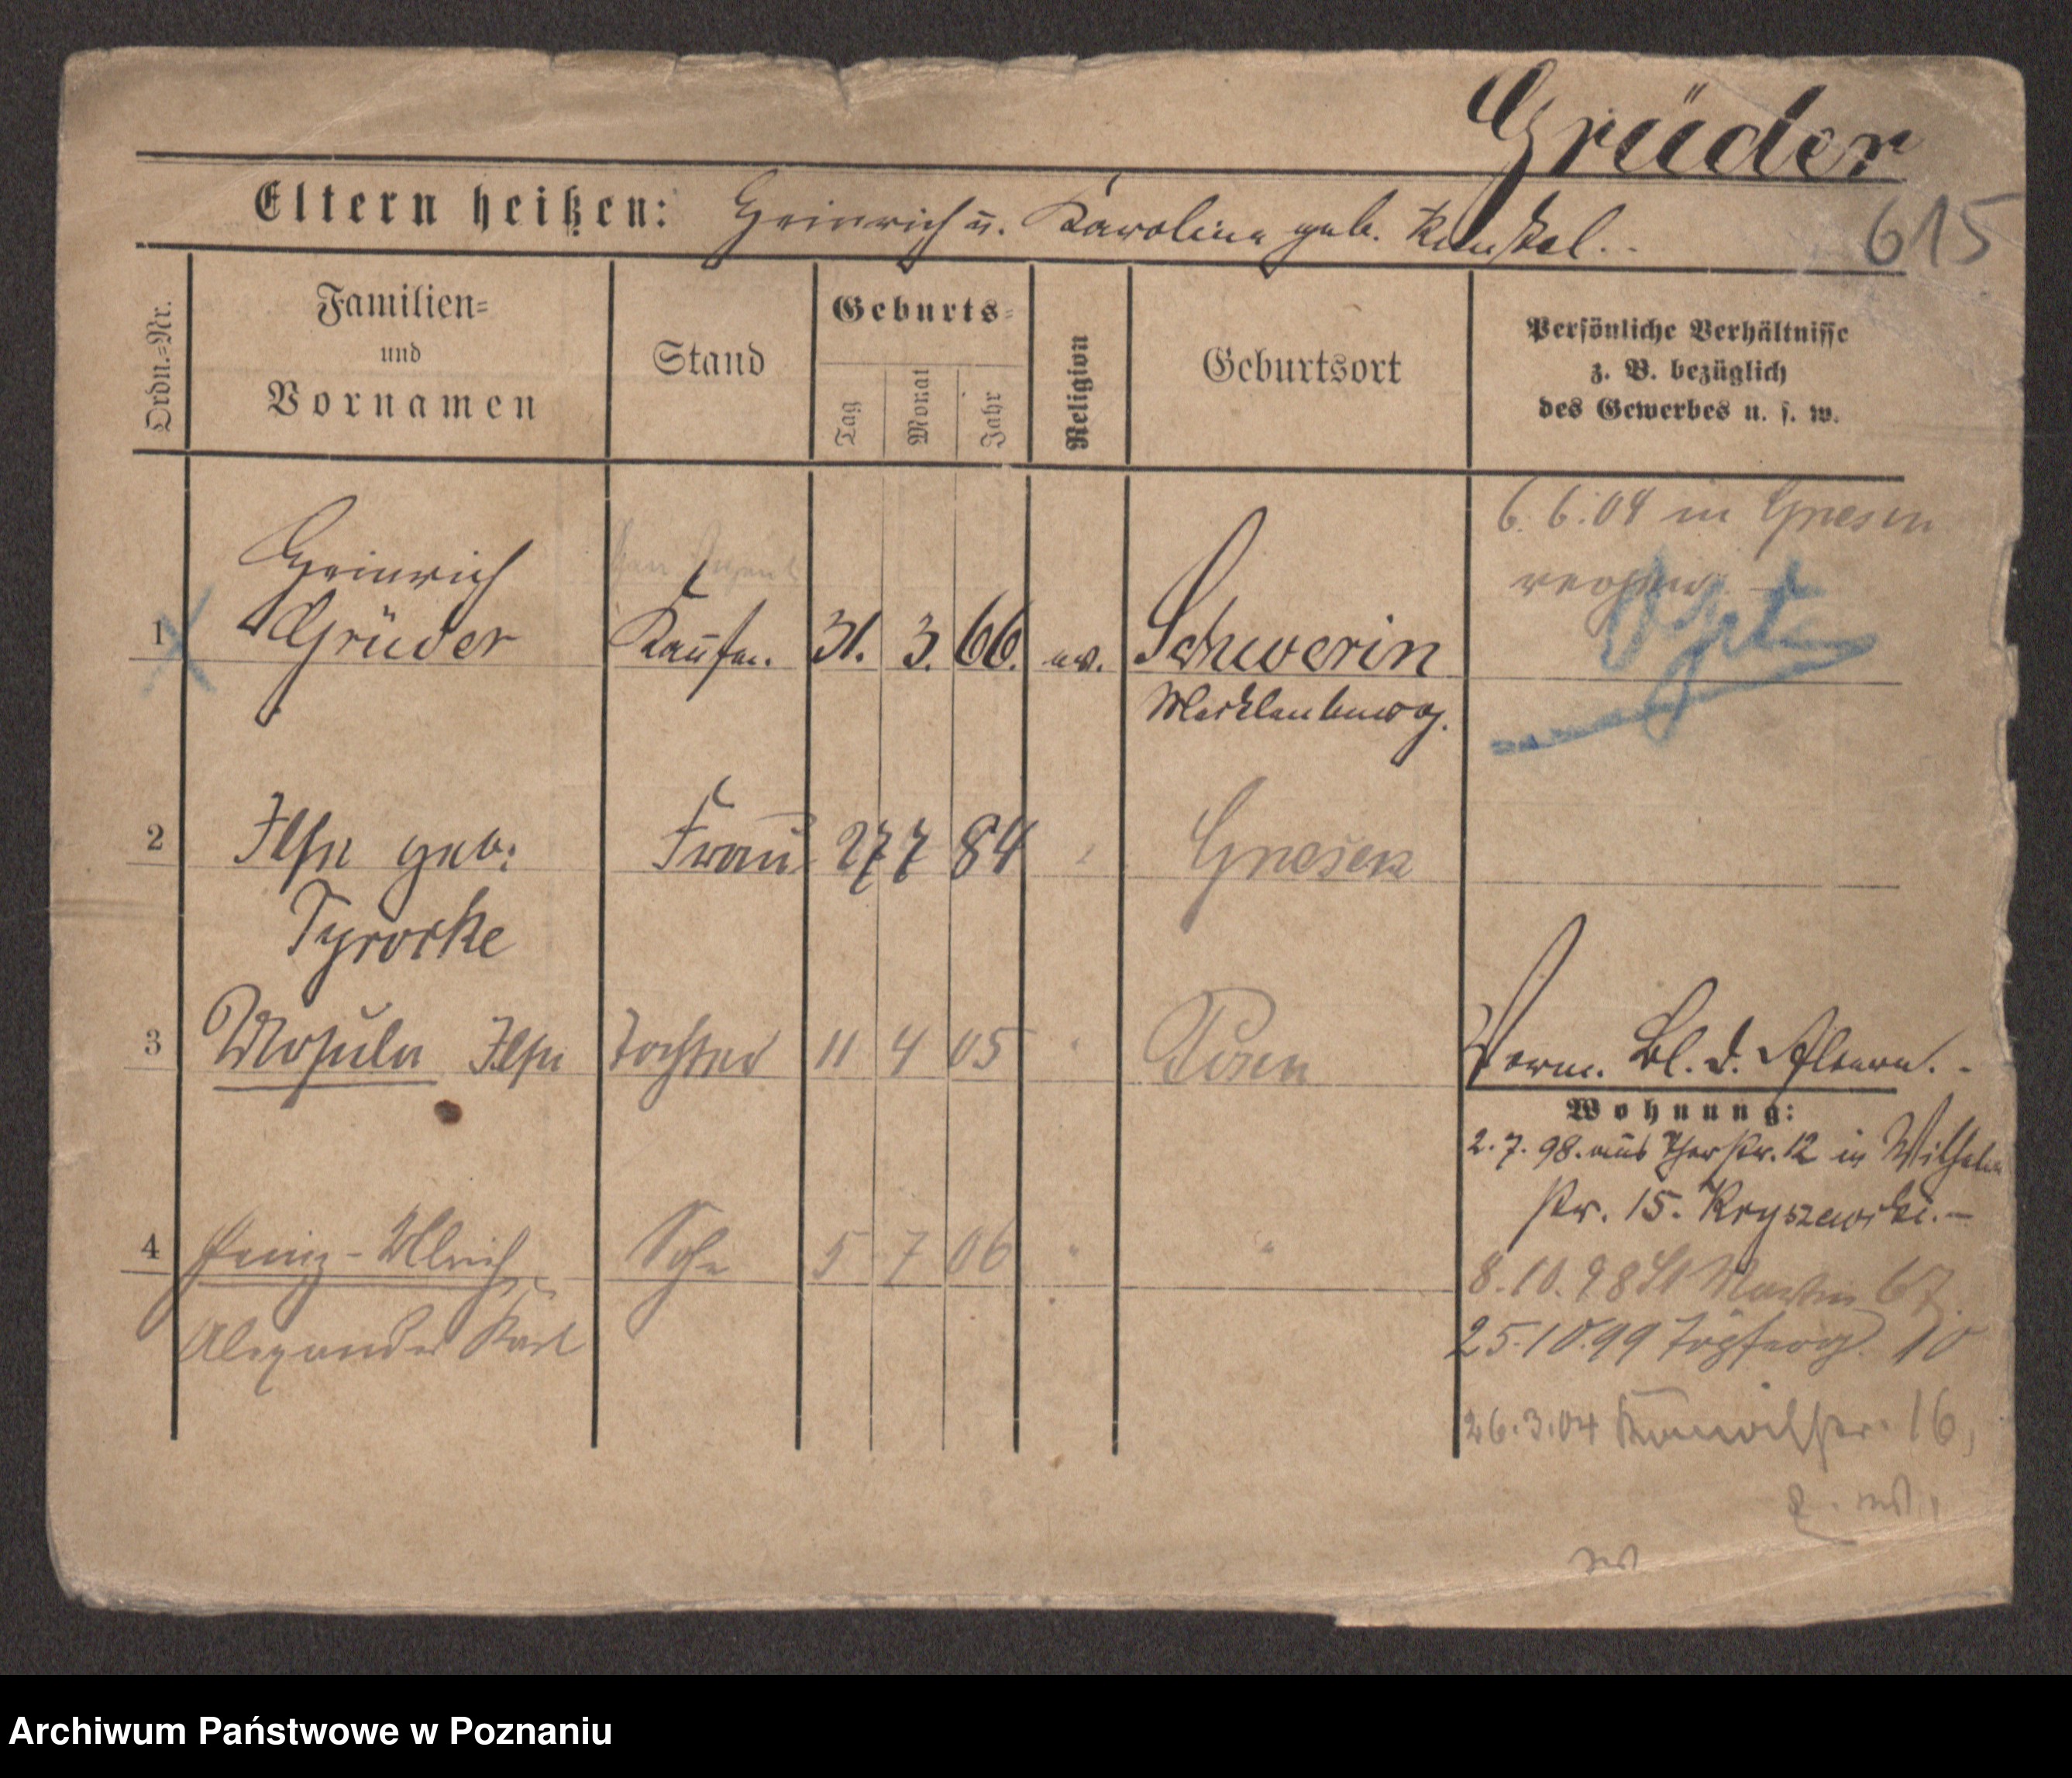 Grüder
Eltern heißen: Heinrich u. Karoline geb. Kunkel.
615
Ordn.=Nr.
Familien=
und
Vornamen
Stand
Geburts=
Tag
Monat
Jahr
Religion
Geburtsort
Persönliche Verhältnisse
z. B. bezüglich
des Gewerbes u. s. w.
6.6.04 in Gnesen
Heinrich
1 Grüder Kaufm. 31. 3. 66. ev. Schwerin
Mecklenburg.
2 Ilse geb. Frau 27 7 84 Gnesen
Tyrocke
3 Ursula Ilse Tochter 11 4 05 " Posen
Verm. Bl. d. Eltern.
Wohnung:
2. 7. 98. aus str. 12 in Wilhelm
str. 15. Kryszewski.
4 Heinz-Ulrich Sohn 5 7 06 " "
Alexander Karl
8.10.98 St Martin 67.
25.10.99 Töpferg. 10
26.3.04 16,
Archiwum Państwowe w Poznaniu